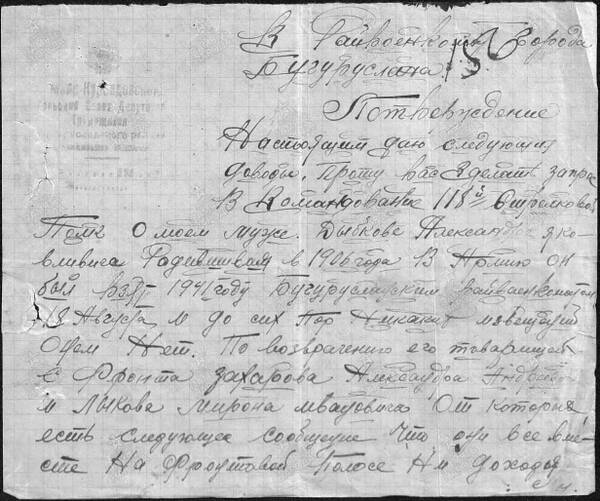 В Райвоенкомат Города
Бугуруслана
Потверждение
Настоящим даю следующии
доводы. Прошу вас зделать запрос
В Командование 118й Стрелковой
Полк О моем муже. Дыбкове Александре яко
вливиса Родившимся в 1906 года В Армию он
был взят 1941 году Бугурусланским райваенкоматом
18 Августа и до сих Пор Никаких извещений
Онем Нет. По возвращению его товарищей
с Фронта захарова Александра Андреев
и Лыкова мирона ивановича От которых
есть следующее сообщение Что они все вме-
сте На Фронтовой Полосе Ни доходя